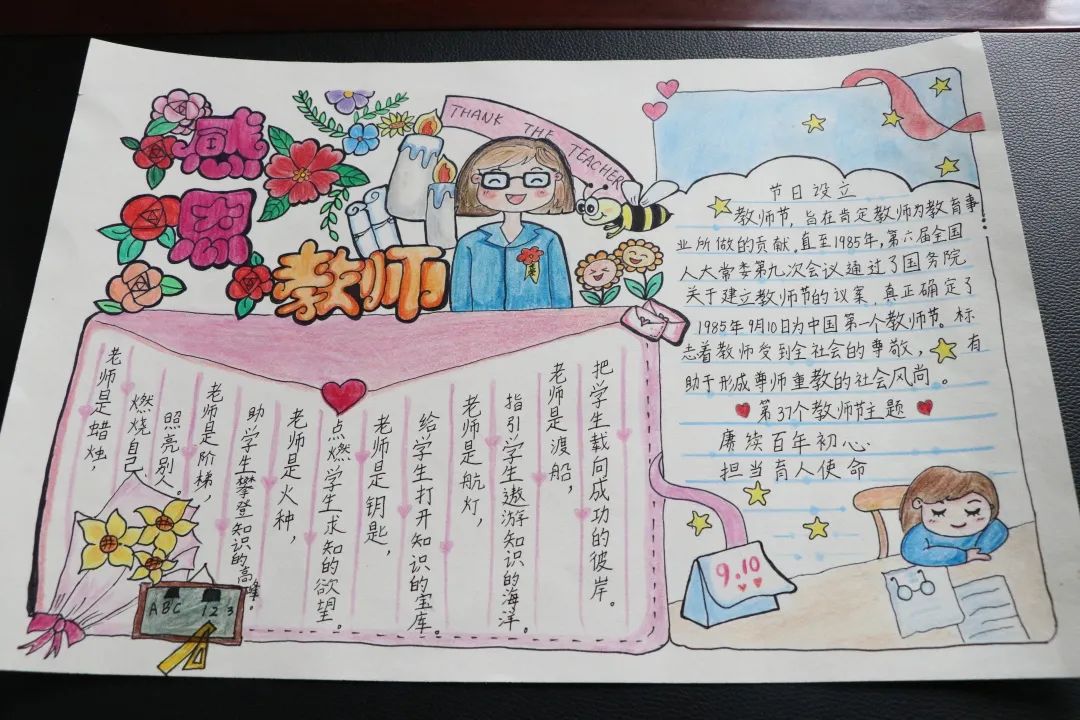 感
恩
教师
THANK THE TEACHER
老师是蜡烛，
燃烧自己，
照亮别人。
老师是阶梯，
助学生攀登知识的高峰。
老师是火种，
点燃学生求知的欲望。
老师是钥匙，
给学生打开知识的宝库。
老师是航灯，
指引学生遨游知识的海洋。
老师是渡船，
把学生载向成功的彼岸。
ABC 123
节日设立
教师节，旨在肯定教师为教育事
业所做的贡献，直至1985年，第六届全国
人大常委第九次会议通过了国务院
关于建立教师节的议案，真正确定了
1985年9月10日为中国第一个教师节。标
志着教师受到全社会的尊敬，有
助于形成尊师重教的社会风尚。
第37个教师节主题
赓续百年初心
担当育人使命
9.10